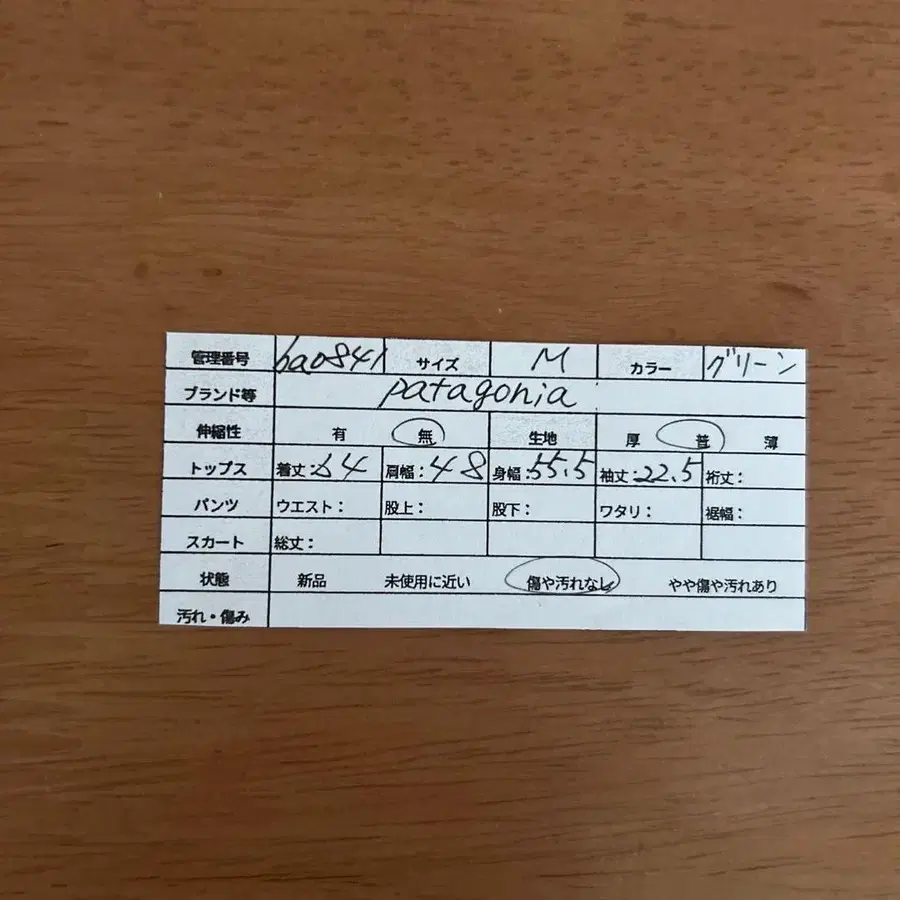 管理番号 ba0841 サイズ M カラー グリーン
ブランド等 patagonia
伸縮性 有 無 生地 厚 普 薄
トップス 着丈:64 肩幅:48 身幅:55.5 袖丈:22.5 裄丈:
パンツ ウエスト: 股上: 股下: ワタリ: 裾幅:
スカート 総丈:
状態 新品 未使用に近い 傷や汚れなし やや傷や汚れあり
汚れ・傷み